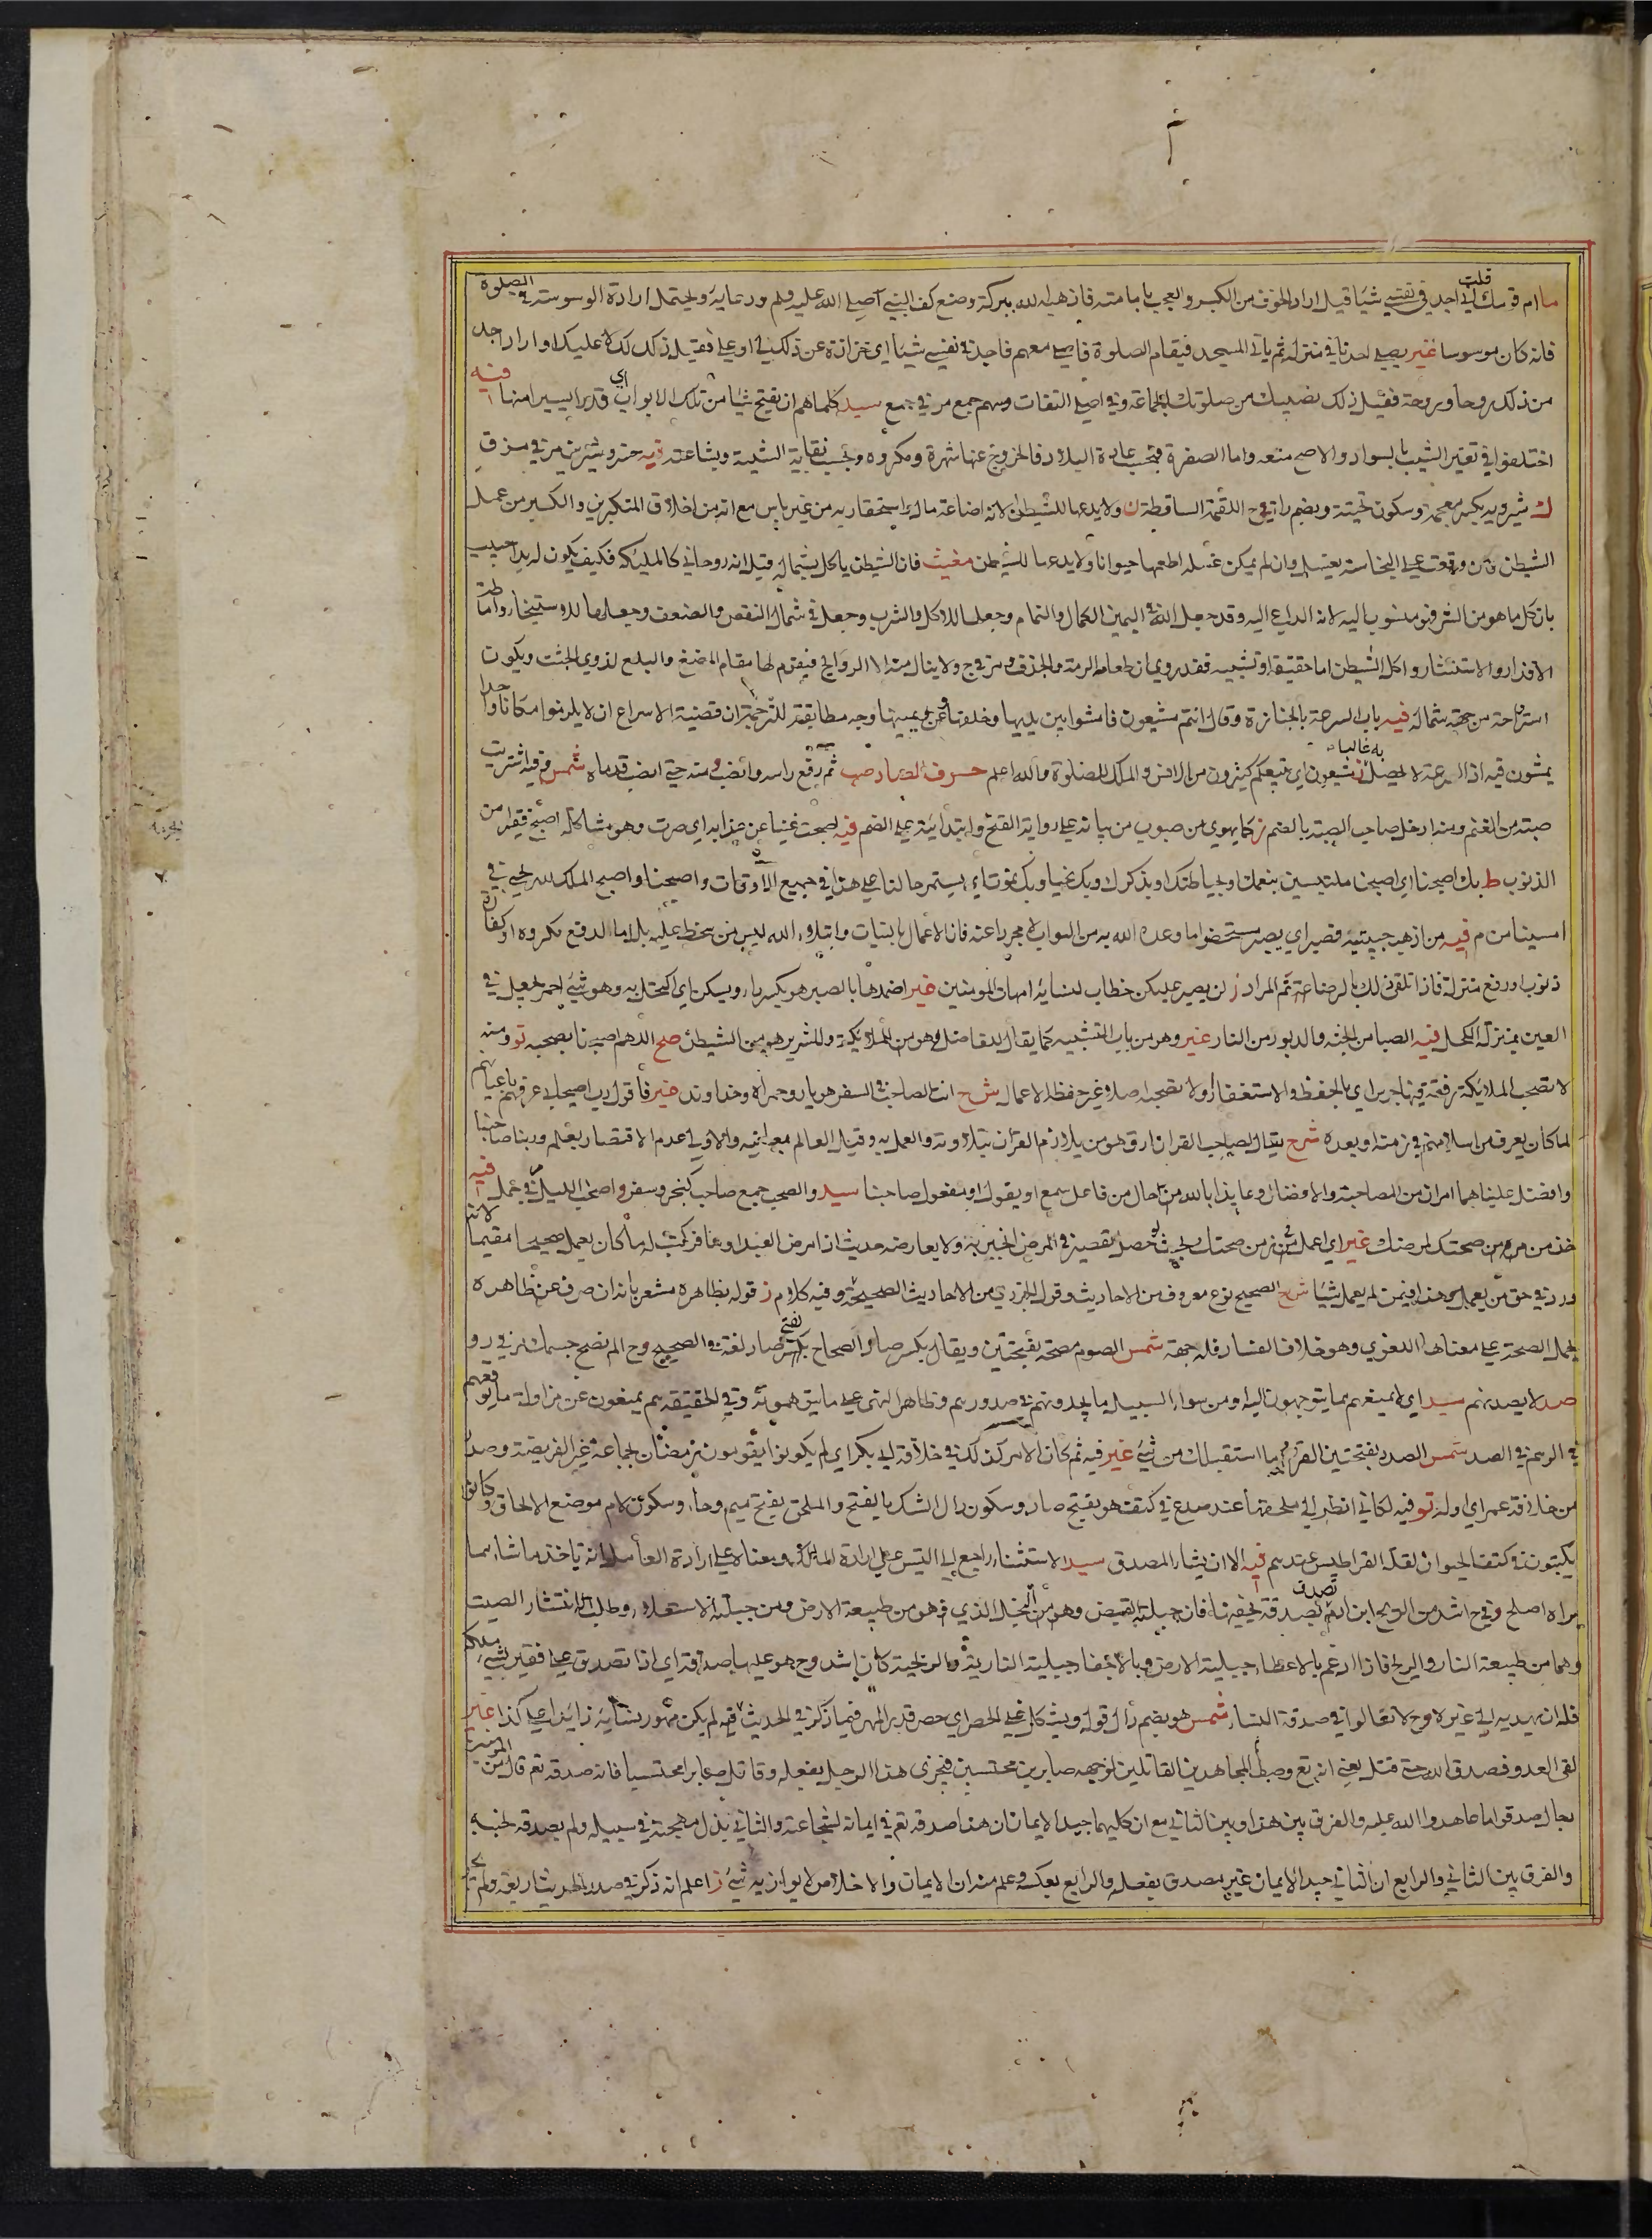 ما ام قومك قلت اني اجد في نفسي شيئا قيل اراد الخوف من الكبر والعجب بامامته فاذهبه الله ببركة وضع كف النبي صلى الله عليه وسلم ودعايه ويحتمل ارادة الوسوسة في الصلوة
فانه كان موسوسا غير يصلي احدنا في منزله ثم ياتي المسجد فيقام الصلوة فاصلي معهم فاجد في نفسي شيئا اي حزازة عن ذلك لي او علي فقيل ذلك لك لا عليك او اراد اجد
من ذلك روحا وروحة فقيل ذلك نصيبك من صلوتك بالجماعة وفي اصلي التفات وسهم جمع مر في جمع سيد كلما هم ان يفتح شيئا من تلك الابواب اي قدرا يسيرا منها فيه
اختلفوا في تغير الشيب بالسواد والاصح منعه واما الصفرة فبحسب عادة البلاد فالخروج عنها شهرة ومكروه وبحسب نقاية الشيبة وبشاعته
ك شيرويه بكسر معجمة وسكون تحتية وبضم را اللقمة الساقطة ن ولا يدعها للشيطان لانه اضاعة مال واستحقار به من غير باس مع انه من اخلاق المتكبرين والكبر من عمل
الشيطن وان وقعت على النجاسة يغسل وان لم يمكن غسله اطعمها حيوانا ولا يدعها للشيطن مغيث فان الشيطن ياكل بشماله قيل انه روحاني كالمليكة فكيف يكون له يد اجيب
بان كل ما هو من الشر فهو منسوب اليه لانه الداعي اليه وقد جعل الله في اليمين الكمال والتمام وجعلها للاكل والشرب وجعل في شمال النقص والضعف وجعلها للاستنجاء واماطة
الاقذار والاستنثار واكل الشيطن اما حقيقة او تشبيه فقد روي ان طعامه الرمة والجدف ولا ينال منه الا الروايح فيقوم لها مقام المضغ والبلع لذوي الجثث ويكون
استراحة من جهة شماله فيه باب السرعة بالجنازة وقال انتم مشيعون فامشوا بين يديها وخلفها وعن يمينها وجه مطابقته للترجمة ان قضية الاسراع ان لا يلزموا مكانا واحدا
يمشون فيه اذ السرعة لا يحصل به غالبا ز يشيعون اي يتبعكم كثيرون من الانس والملك للصلوة والله اعلم حرف الصاد صب ثم رفع راسه وانصب منه حتى انصب قدماه شمس فيه اشتريت
صبة من الغنم ومنه ادخل صاحب الصبة بالضم ز كما يهوي من صبوب من بيانه على رواية الفتح وابتدائية على الضم فيه اصبحت غنيا عن عذابه اي صرت وهو مشاكلة اصبح فقيرا من
الذنوب ط بك اصبحنا اي اصبحنا ملتبسين بنعمتك او بحياطتك او بذكرك وبك نحيا وبك نموت اي يستمر حالنا على هذا في جميع الاوقات واصبحنا واصبح الملك لله يجيء في
امسينا من م فيه من اذهب حبيبتيه فصبر اي يصير مستحضرا ما وعده الله به من الثواب لا مجردا عنه فان الاعمال بالنيات وابتلاء الله ليس من سخط عليه بل اما لدفع مكروه او كفارة
ذنوب او رفع منزلة فاذا تلقى ذلك بالرضا تم المراد ز لن يصبر عليكن خطاب لنسائه امهات المومنين غير اضمدها بالصبر هو بكسر باء ويسكن اي اكتحل به وهو شيء احمر يجعل في
العين بمنزلة الكحل فيه الصبا من الجنة والدبور من النار غير وهو من باب التشبيه كما يقال للفاضل هو من الملائكة وللشرير هو من الشيطان صح اللهم اصحبنا بصحبه تو ومنه
لا تصحب الملائكة رفقة فيها جرس اي بالحفظ والاستغفار ولا تصحبه اصلا غير حفظ الاعمال شرح انت الصاحب في السفر هو يار وهمراه وخداوند غير فاقول رب اصيحابي عرفهم باعيانهم
لما كان يعرف من اسلامهم في زمنه او بعده شرح يقال لصاحب القران ارق هو من يلازم القران بتلاوته والعمل به وقيل العالم بمعانيه والاولى عدم الاقتصار بعلم وربنا صاحبنا
وافضل علينا هما امران من المصاحبة والافضال وعايذا بالله من حال من فاعل سمع او يقول او مفعول صاحبنا سيد والصحب جمع صاحب كنجر وسفر واصحاب الليل في جمل فيه
خذ من صحتك لمرضك غير اي اعمل في زمن صحتك بحيث لو حصل تقصير في المرض انجبر به ولا يعارضه حديث اذا مرض العبد او سافر كتب له ما كان يعمل صحيحا مقيما لانه
ورد في حق من يعمل وهذا فيمن لم يعمل شيئا شرح الصحيح نوع معروف من الاحاديث وقول الترمذي من الاحاديث الصحيحة وفيه كلام ز قوله بظاهره مشعر بانه ان صرف عن ظاهره
يحمل الصحة على معناها اللغوي وهو خلاف الفساد فله جهة شمس الصوم مصحة بفتحتين ويقال بكسر صاد والصحاح بكسر صاد لغة في الصحيح وح الم نصح جسمك
صد لا يصدنهم سيد اي لا يمنعهم مما يتوجهون اليه او من سواء السبيل ما يجدونه في صدورهم وظاهر النهي على ما يتوهمونه وفي الحقيقة هم يمنعون عن مزاولة ما يوقعهم
في الوهم في الصد شمس الصدد بفتحتين القرب وما استقبلك من شيء غير فيه ثم كان الامر كذلك في خلافة ابي بكر اي لم يكونوا يقومون في رمضان بجماعة غير الفريضة وصدر
من خلافة عمر اي اوله تو فيه لكاني انظر الى ملحقها عند صدع في كتف هو بفتح صاد وسكون دال الشق بالفتح والملحق بفتح ميم وحاء وسكون لام موضع الالحاق وكانوا
يكتبون في كتف الحيوان لقلة القراطيس عندهم فيه الا ان يشاء المصدق سيد الاستثناء راجع الى التيس على ارادة المالك ومعناه على ارادة العامل انه ياخذ ما شاء مما
يراه اصلح وفي ح اشد من الريح ابن ادم تصدق بصدقة يخفيها فان جبلته القبض وهو من البخل الذي هو من طبيعة الارض ومن جبلته الاستعلاء وطلب انتشار الصيت
وهما من طبيعة النار والريح فاذا ارغم بالاعطاء جبلية الارض وبالاخفاء جبلية النارية والريحية كان اشد وح هو عليها صدقة اي اذا تصدق على فقير بشيء ملكه
فله ان يهديه الى غيره وح لا تغالوا في صدقة النساء شمس هو بضم دال قوله ويشكل على الحصر اي حصر قدر المهر فيما ذكر في الحديث فانه لم يكن مهور نسائه زايدا على كذا غير
لقي العدو فصدق الله حتى قتل يعني انه تع وصف المجاهدين القاتلين لوجهه صابرين محتسبين فيجزى هذا الرجل بفعله وقاتل صابرا محتسبا فانه صدقه تع قال من المومنين
رجال صدقوا ما عاهدوا الله عليه والفرق بين هذا وبين الثاني مع ان كليهما جيد الايمان ان هذا صدقه تع في ايمانه لشجاعته والثاني بذل مهجته في سبيله ولم يصدقه لجبنه
والفرق بين الثاني والرابع ان الثاني جيد الايمان غير مصدق بفعله والرابع بعكسه وعلم منه ان الايمان والاخلاص لا يوازيه شيء ز اعلم انه ذكر في صدر الحديث اربعة ولم